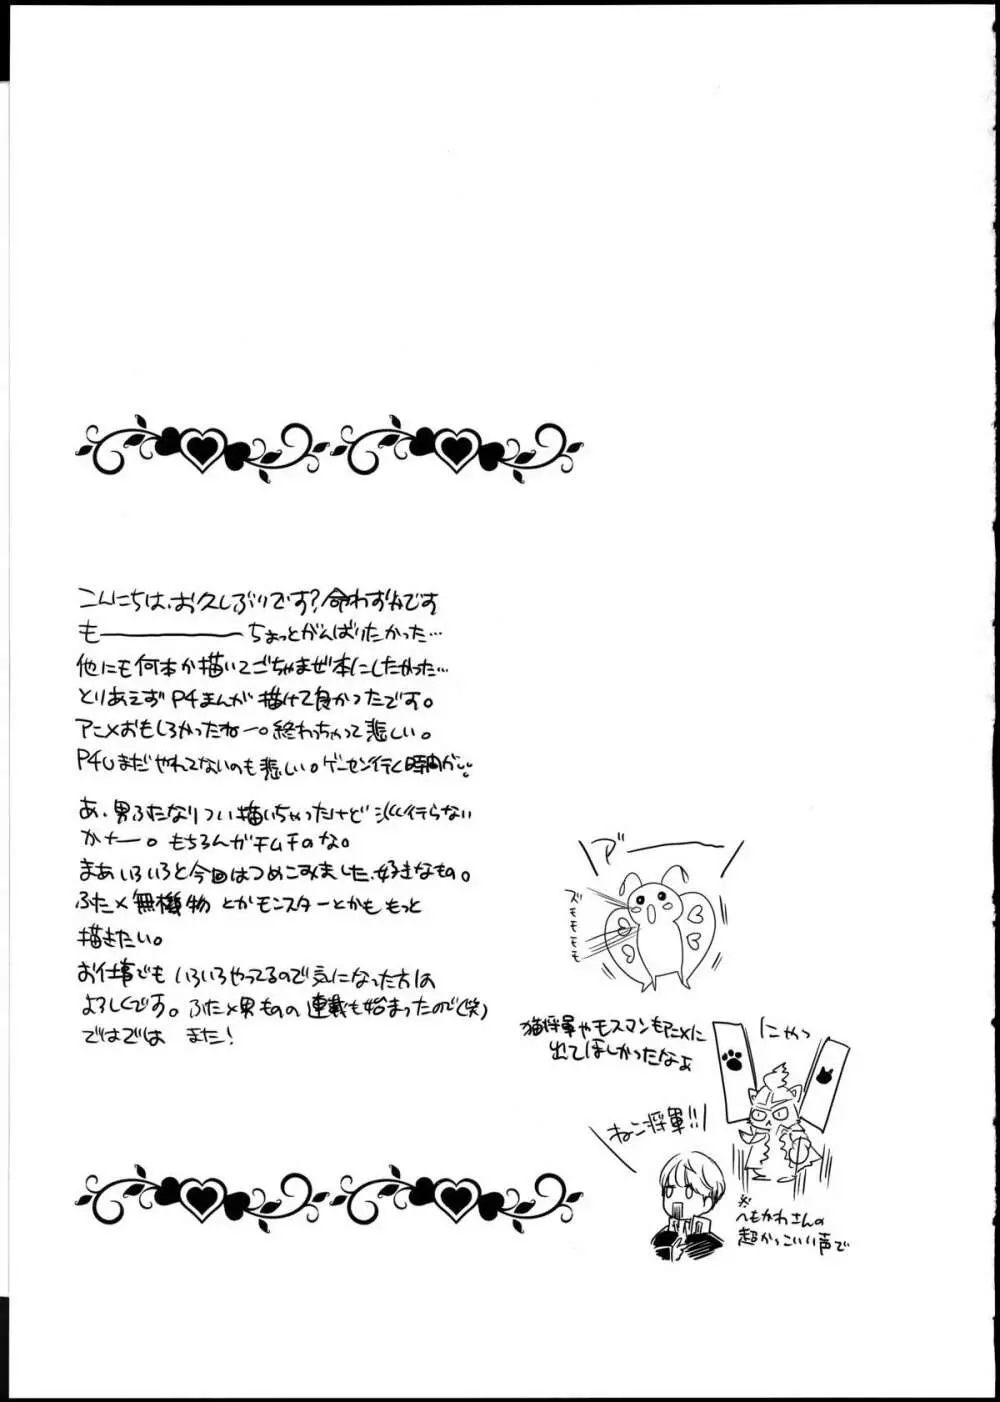 こんにちは、お久しぶりです?命わずみです
も――――ちょっとがんばりたかった…
他にも何本か描いてごちゃまぜ本にしたかった…
とりあえずP4まんが描けて良かったです。
アニメおもしろかったねー。終わっちゃって悲しい。
P4Uまだやれてないのも悲しい。ゲーセン行く時間が…
あ、男ふたなりつい描いちゃったけど 行らない
かなー。もちろんガチムチのな。
まあいろいろと今回はつめこみました、好きなもの。
ふた×無機物とかモンスターとかももっと
描きたい。
お仕事でもいろいろやってるので気になった方は
よろしくです。ふた×男ものの連載も始まったので(笑)
ではでは また!
アー
ズモモモモ
猫将軍やモスマンもアニメに
出てほしかったなぁ
にゃっ
ねこ将軍!!
※へもかわさんの
超かっこいい声で